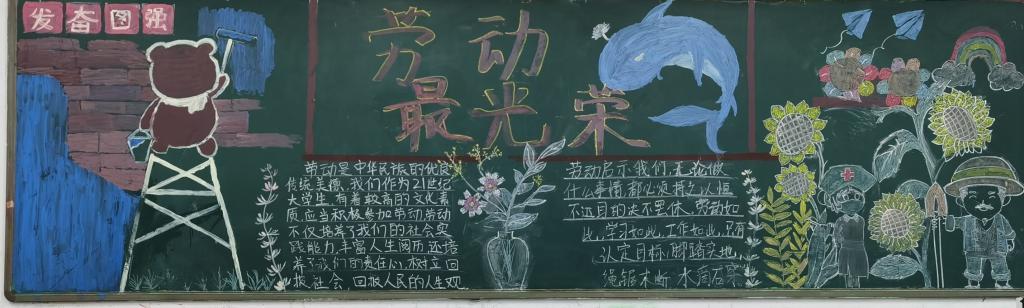 发奋图强
劳动
最光荣
劳动是中华民族的优良
传统美德、我们作为21世纪
大学生,有着较高的文化素
质,应当积极参加劳动,劳动
不仅培养了我们的社会实
践能力,丰富人生阅历,还培
养了我们的责任心,树立回
报社会、回报人民的人生观
劳动启示我们,无论做
什么事情都必须持之以恒
不达目的决不罢休、劳动如
此,学习如此,工作如此,只有
认定目标,脚踏实地,
绳锯木断 水滴石穿